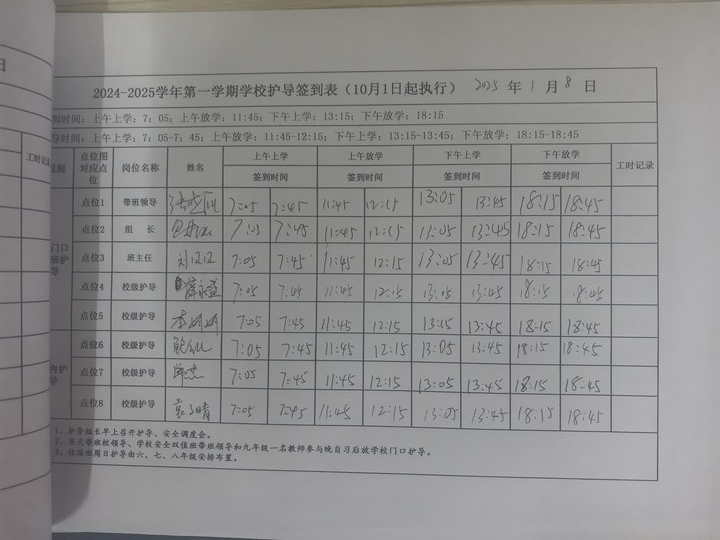 日
2024-2025学年第一学期学校护导签到表（10月1日起执行） 2025 年 1 月 8 日
到时间：上午上学：7：05；上午放学：11:45；下午上学：13:15；下午放学：18:15
导时间：上午上学：7：05-7：45；上午放学：11:45-12:15；下午上学：13:15-13:45；下午放学：18:15-18:45
工时记 组别 点位图对应点位 岗位名称 姓名 上午上学 上午放学 下午上学 下午放学 工时记录
签到时间 签到时间 签到时间 签到时间
点位1 带班领导 7:05 7:45 11:45 12:15 13:05 13:45 18:15 18:45
点位2 组 长 7:05 7:45 11:45 12:15 13:05 13:45 18:15 18:45
门口班护导 点位3 班主任 7:05 7:45 11:45 12:15 13:05 13:45 18:15 18:45
点位4 校级护导 7:05 7:45 11:45 12:15 13:05 13:45 18:15 18:45
点位5 校级护导 7:05 7:45 11:45 12:15 13:15 13:45 18:15 18:45
点位6 校级护导 7:05 7:45 11:45 12:15 13:05 13:45 18:15 18:45
内护导 点位7 校级护导 7:05 7:45 11:45 12:15 13:05 13:45 18:15 18:45
点位8 校级护导 袁子晴 7:05 7:45 11:45 12:15 13:05 13:45 18:15 18:45
1、护导组长早上召开护导、安全调度会。
2、当天带班校领导、学校安全双值班带班领导和九年级一名教师参与晚自习后放学校门口护导。
3、住宿班周日护导由六、七、八年级安排布置。